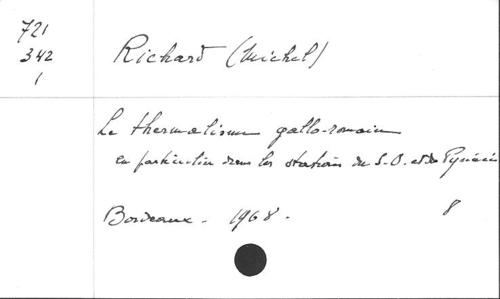 721
342
1
Richard (Michel)
Le thermalisme gallo-romain
en particulier dans les stations du S.O. et des Pyrénées
Bordeaux - 1968.
8